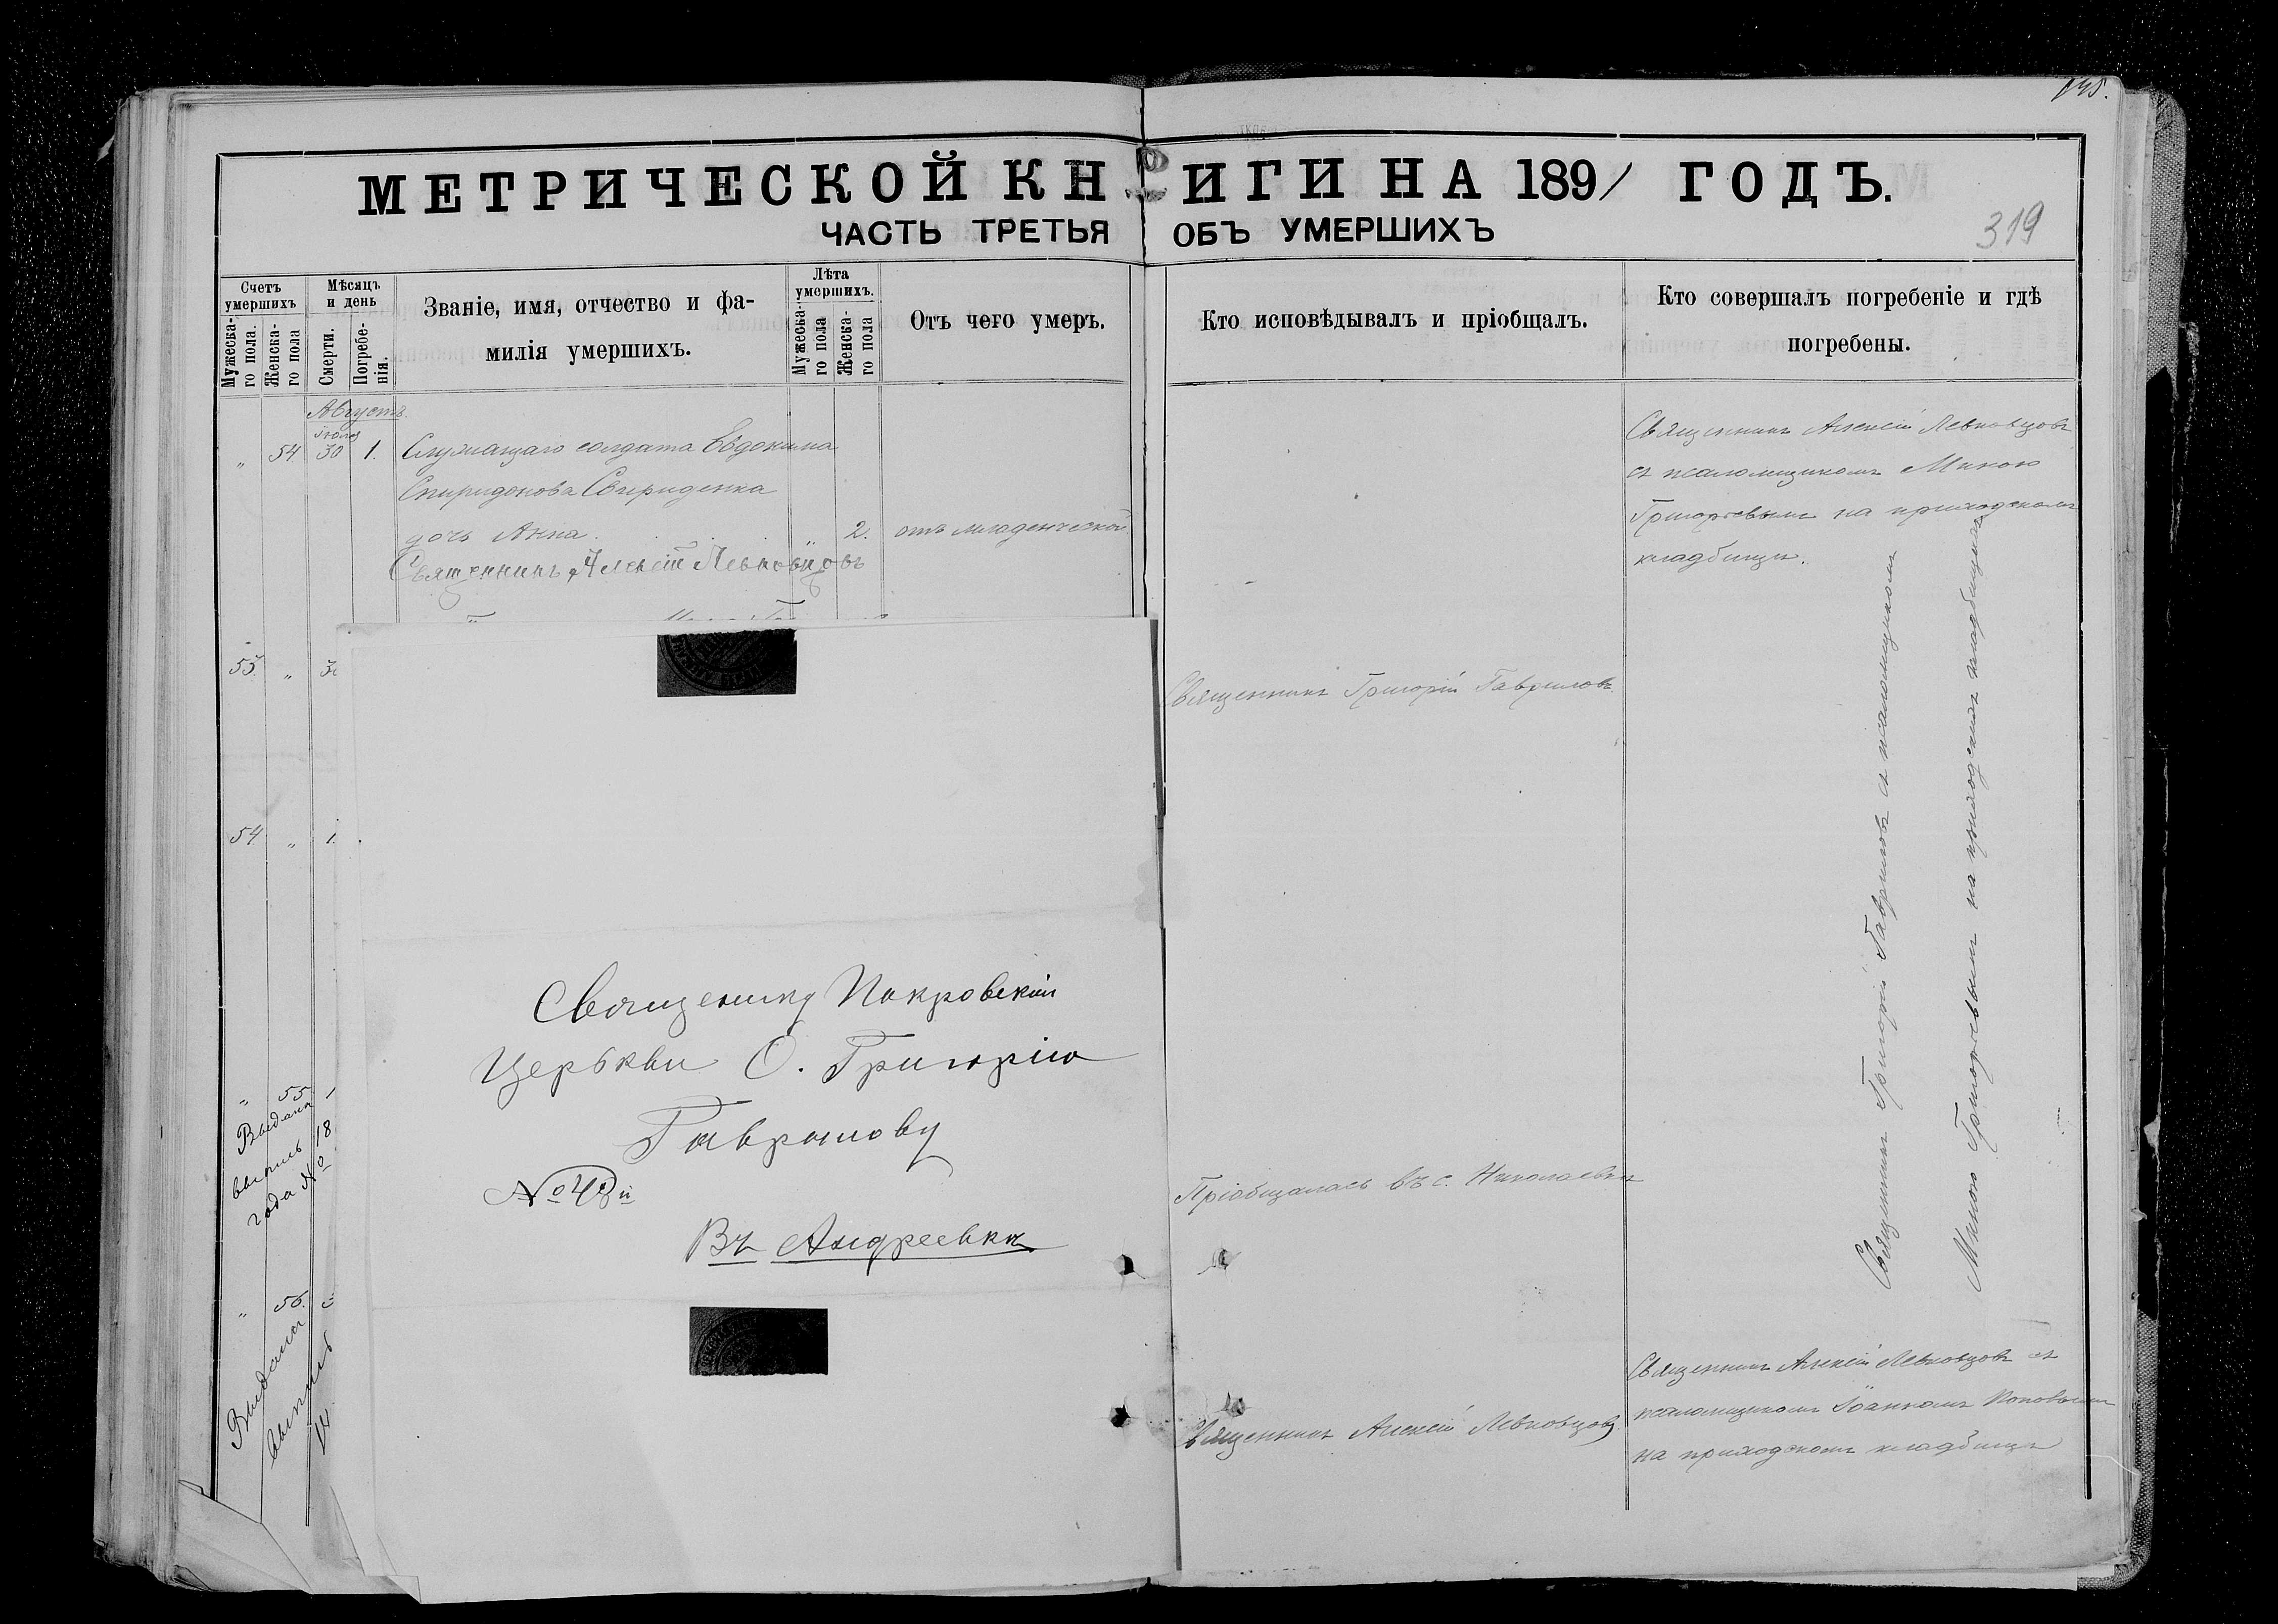 145.
МЕТРИЧЕСКОЙ КНИГИ НА 1891 ГОДЪ.
ЧАСТЬ ТРЕТЬЯ ОБЪ УМЕРШИХЪ
319
Счетъ умершихъ
Мужеска-го пола.
Женска-го пола
Мѣсяцъ и день
Смерти.
Погребе-нія.
Званіе, имя, отчество и фа-
милія умершихъ.
Лѣта умершихъ.
Мужеска-го пола
Женска-го пола
Отъ чего умеръ.
Кто исповѣдывалъ и пріобщалъ.
Кто совершалъ погребеніе и гдѣ
погребены.
Августъ.
„ 54 30 1. Служащаго солдата Евдокима
Спиридонова Свириденка
дочь Анна. „ 2. отъ младенческой
Священникъ Алексій Левковцовъ
Священникъ Алексій Левковцовъ
съ псаломщикомъ Миною
Григорьевымъ на приходскомъ
кладбищѣ.
55. „
Священникъ Григорій Гавриловъ
54 „ 1.
Священнику Покровской
Церькви О. Григорію
Гаврилову
№
Въ Андреевка
„ 55 1
Выдана
выпись 18
года №
Пріобщалась въ с. Николаевкѣ
Священникъ Григорій Гавриловъ съ псаломщикомъ
Миною Григорьевымъ на приходскомъ кладбищѣ
„ 56.
Выдана
выпись
Священникъ Алексій Левковцовъ
Священникъ Алексій Левковцовъ съ
псаломщикомъ Іоанномъ Поповымъ
на приходскомъ кладбищѣ